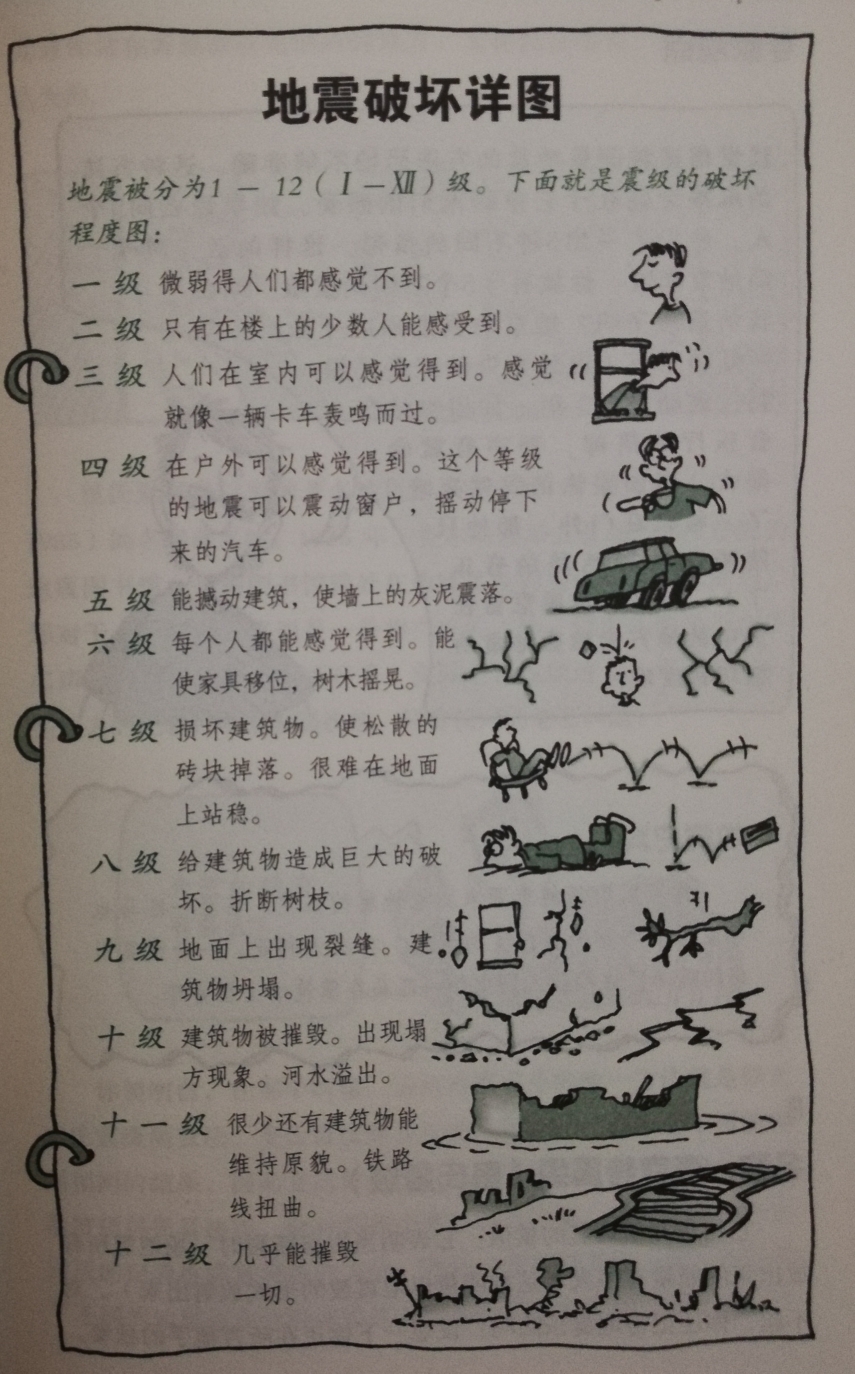 地震破坏详图
地震被分为1－12（Ⅰ－Ⅻ）级。下面就是震级的破坏
程度图：
一级 微弱得人们都感觉不到。
二级 只有在楼上的少数人能感受到。
三级 人们在室内可以感觉得到。感觉
就像一辆卡车轰鸣而过。
四级 在户外可以感觉得到。这个等级
的地震可以震动窗户，摇动停下
来的汽车。
五级 能撼动建筑，使墙上的灰泥震落。
六级 每个人都能感觉得到。能
使家具移位，树木摇晃。
七级 损坏建筑物。使松散的
砖块掉落。很难在地面
上站稳。
八级 给建筑物造成巨大的破
坏。折断树枝。
九级 地面上出现裂缝。建
筑物坍塌。
十级 建筑物被摧毁。出现塌
方现象。河水溢出。
十一级 很少还有建筑物能
维持原貌。铁路
线扭曲。
十二级 几乎能摧毁
一切。